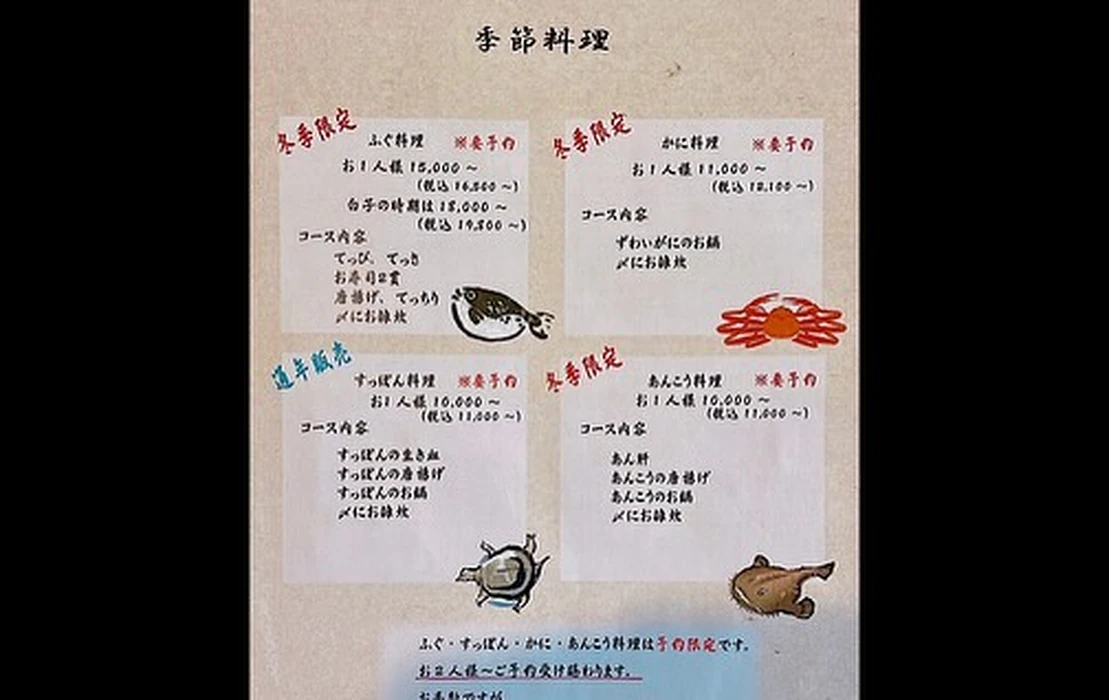 季節料理
冬季限定
ふぐ料理 ※要予約
お1人様 15,000 ～
(税込 16,500 ～)
白子の時期は 18,000 ～
(税込 19,800 ～)
コース内容
てっぴ、てっさ
お寿司2貫
唐揚げ、てっちり
〆にお雑炊
冬季限定
かに料理 ※要予約
お1人様 11,000 ～
(税込 12,100 ～)
コース内容
ずわいがにのお鍋
〆にお雑炊
通年販売
すっぽん料理 ※要予約
お1人様 10,000 ～
(税込 11,000 ～)
コース内容
すっぽんの生き血
すっぽんの唐揚げ
すっぽんのお鍋
〆にお雑炊
冬季限定
あんこう料理 ※要予約
お1人様 10,000 ～
(税込 11,000 ～)
コース内容
あん肝
あんこうの唐揚げ
あんこうのお鍋
〆にお雑炊
ふぐ・すっぽん・かに・あんこう料理は予約限定です。
お2人様～ご予約受け賜わります。
お手数ですが